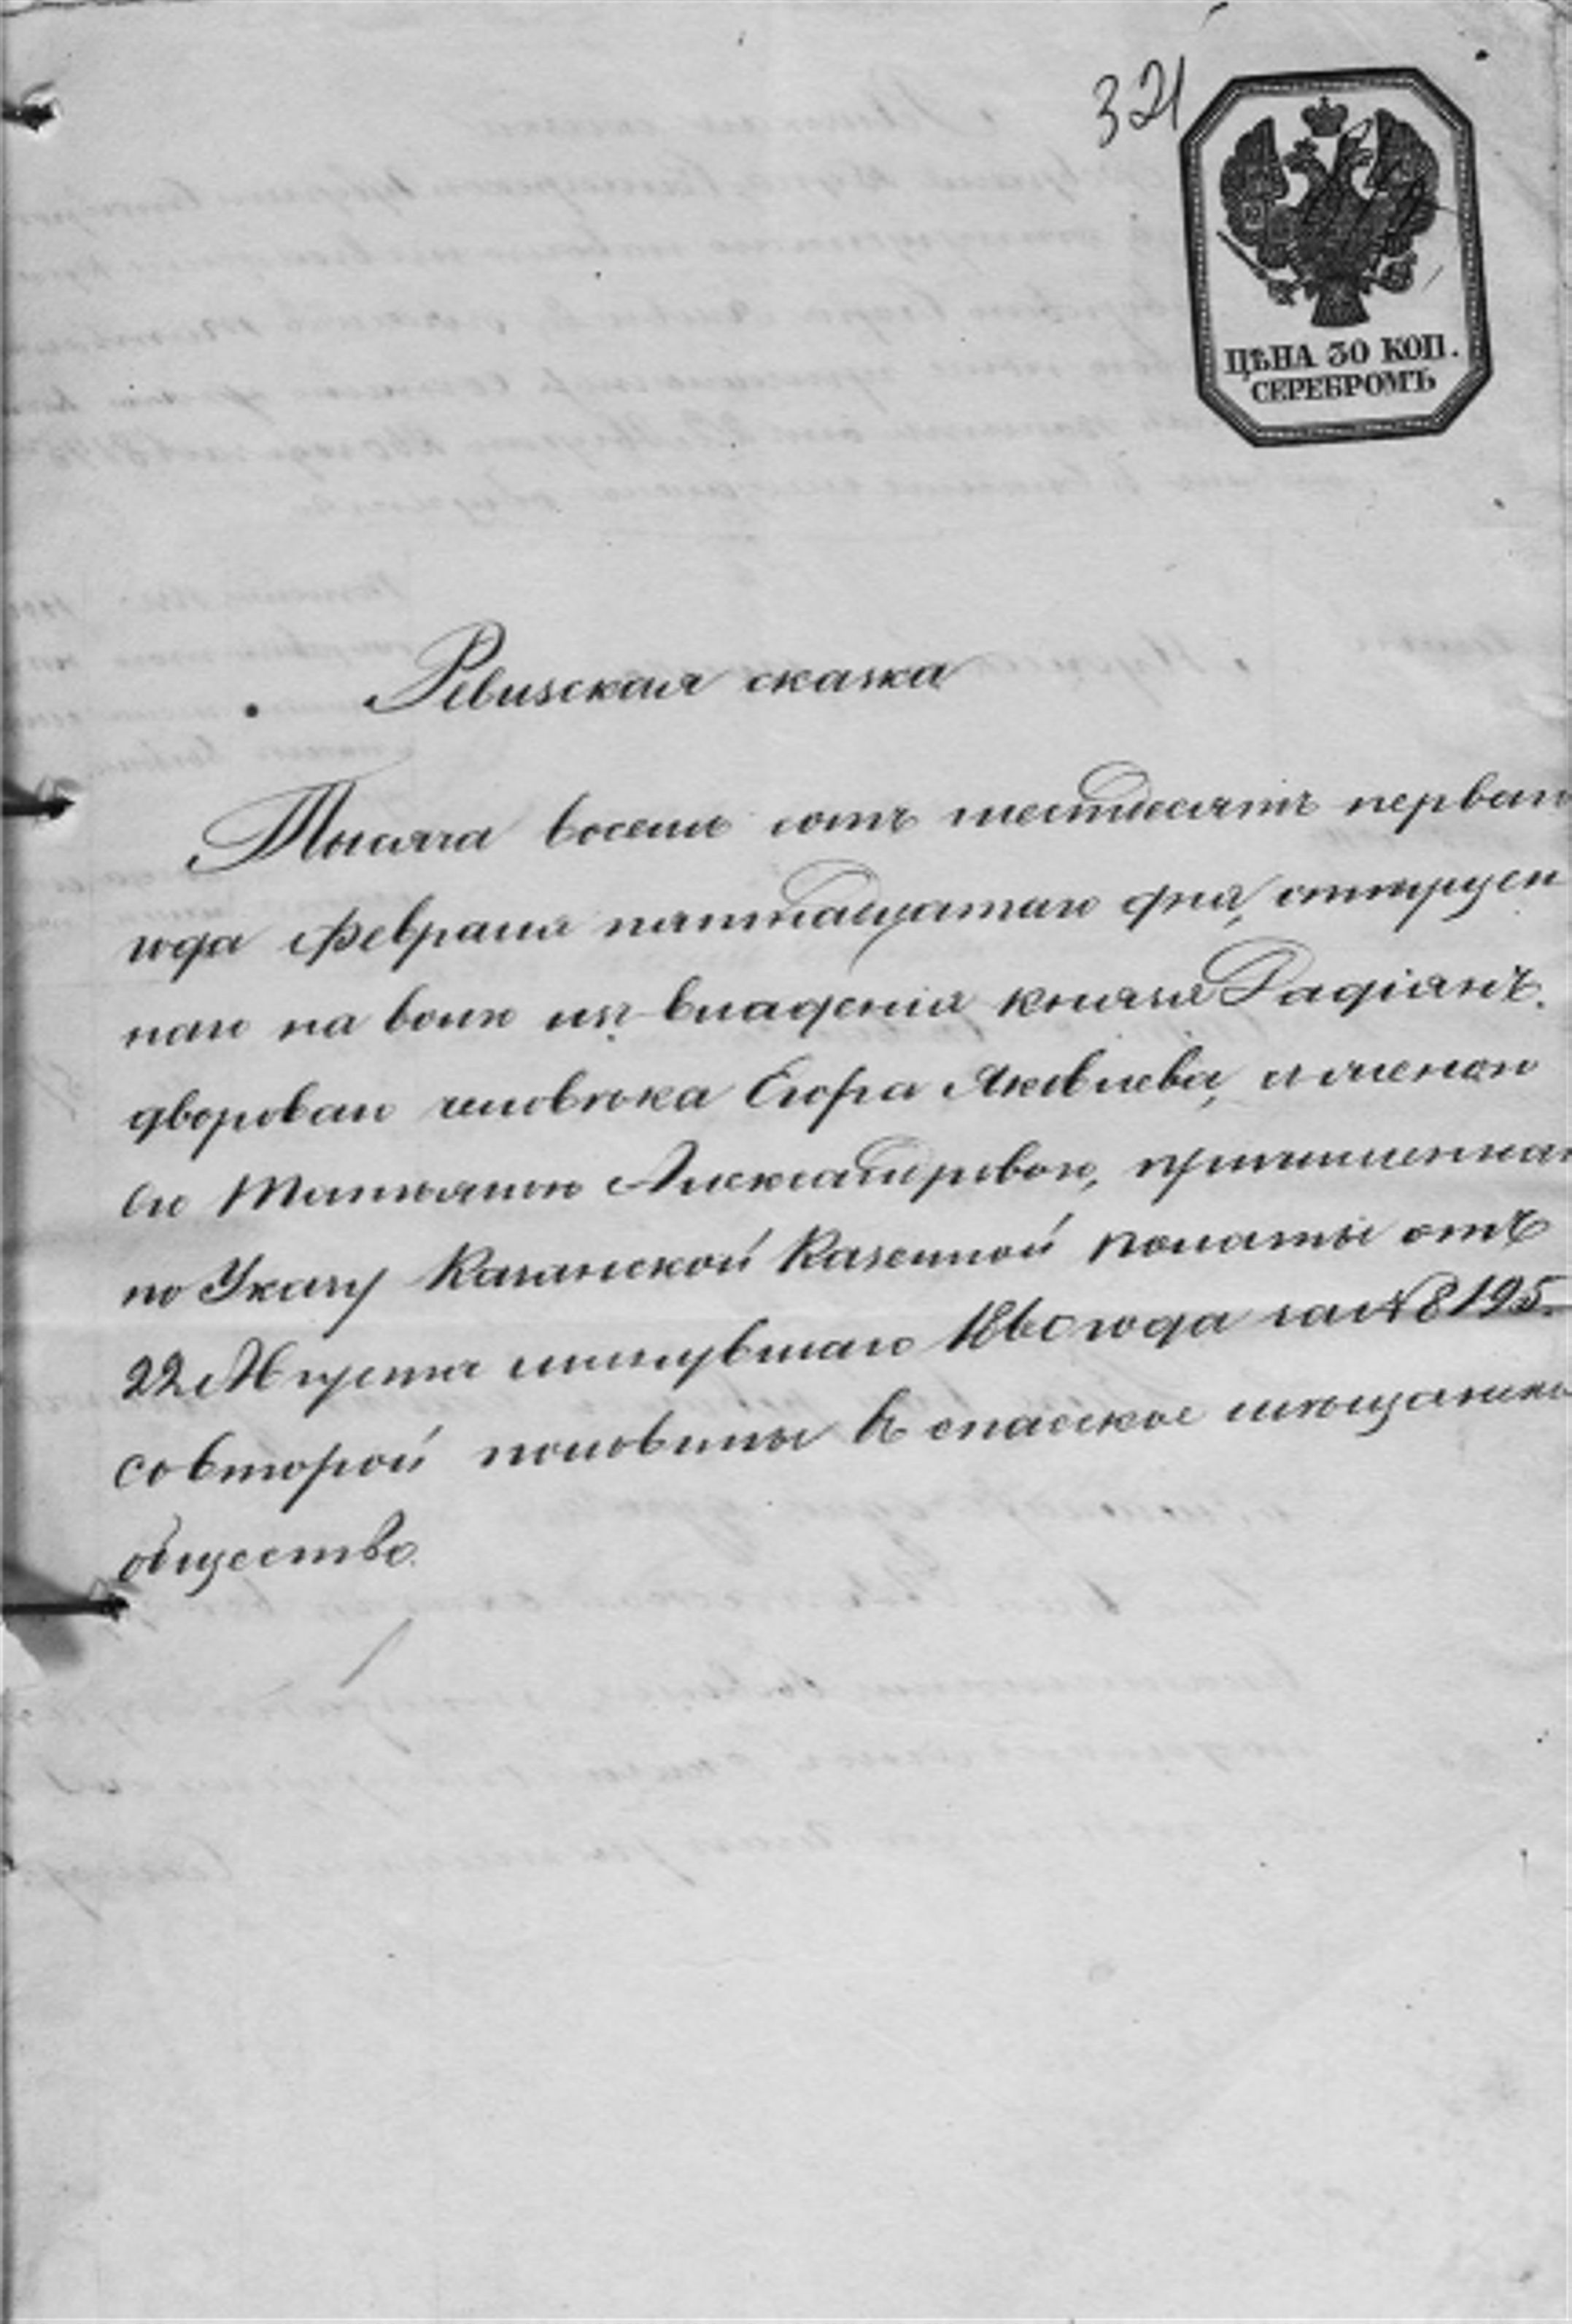 321
ЦѢНА 30 КОП.
СЕРЕБРОМЪ
Ревизская сказка
Тысяча восемь сотъ шестдесятъ перваго
года февраля пятнадцатаго дня, отпущен
наго на волю изъ владенія князя
двороваго человѣка Егора Яковлева, и женою
его Татьяною Александровою, причисленнаго
по Указу Казанской Казенной полаты отъ
22 Августа минувшаго 1860 года за № 8195.
со второй половины въ спаское мѣщанское
общество.